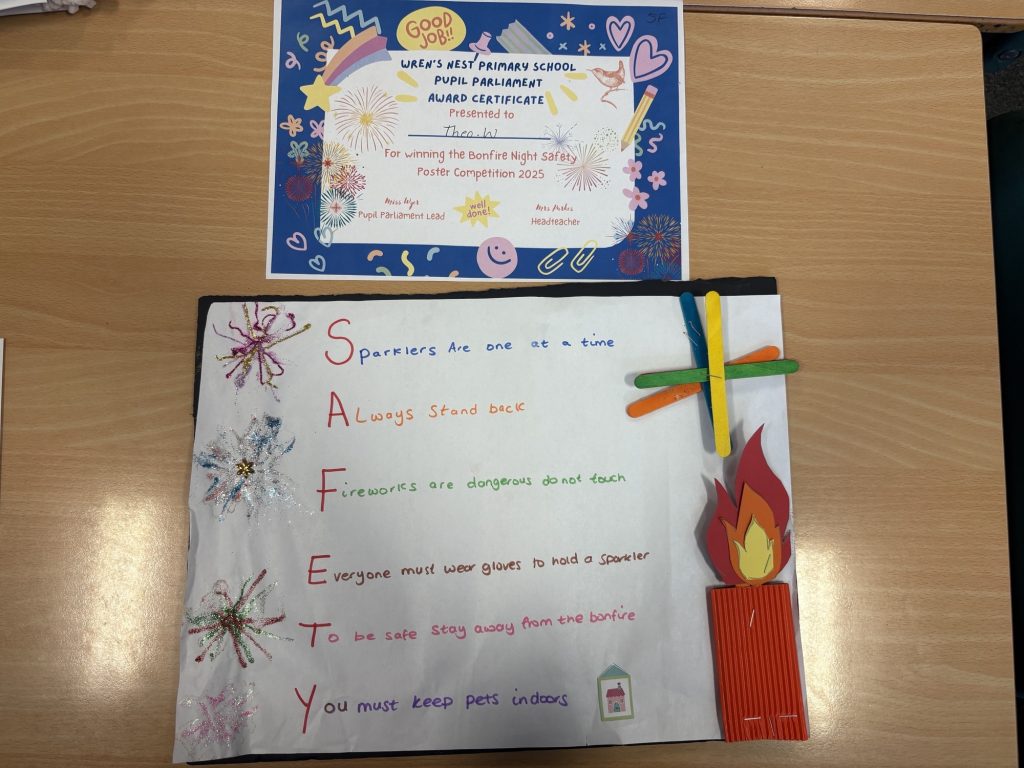 SF
GOOD JOB!!
WREN'S NEST PRIMARY SCHOOL
PUPIL PARLIAMENT
AWARD CERTIFICATE
Presented to
Theo.W
For winning the Bonfire Night Safety
Poster Competition 2025
Miss Wyer
Pupil Parliament Lead
well done!
Mrs Parkes
Headteacher
Sparklers Are one at a time
ALways Stand back
Fireworks are dangerous do not touch
Everyone must wear gloves to hold a sparkler
To be safe stay away from the bonfire
You must keep pets indoors